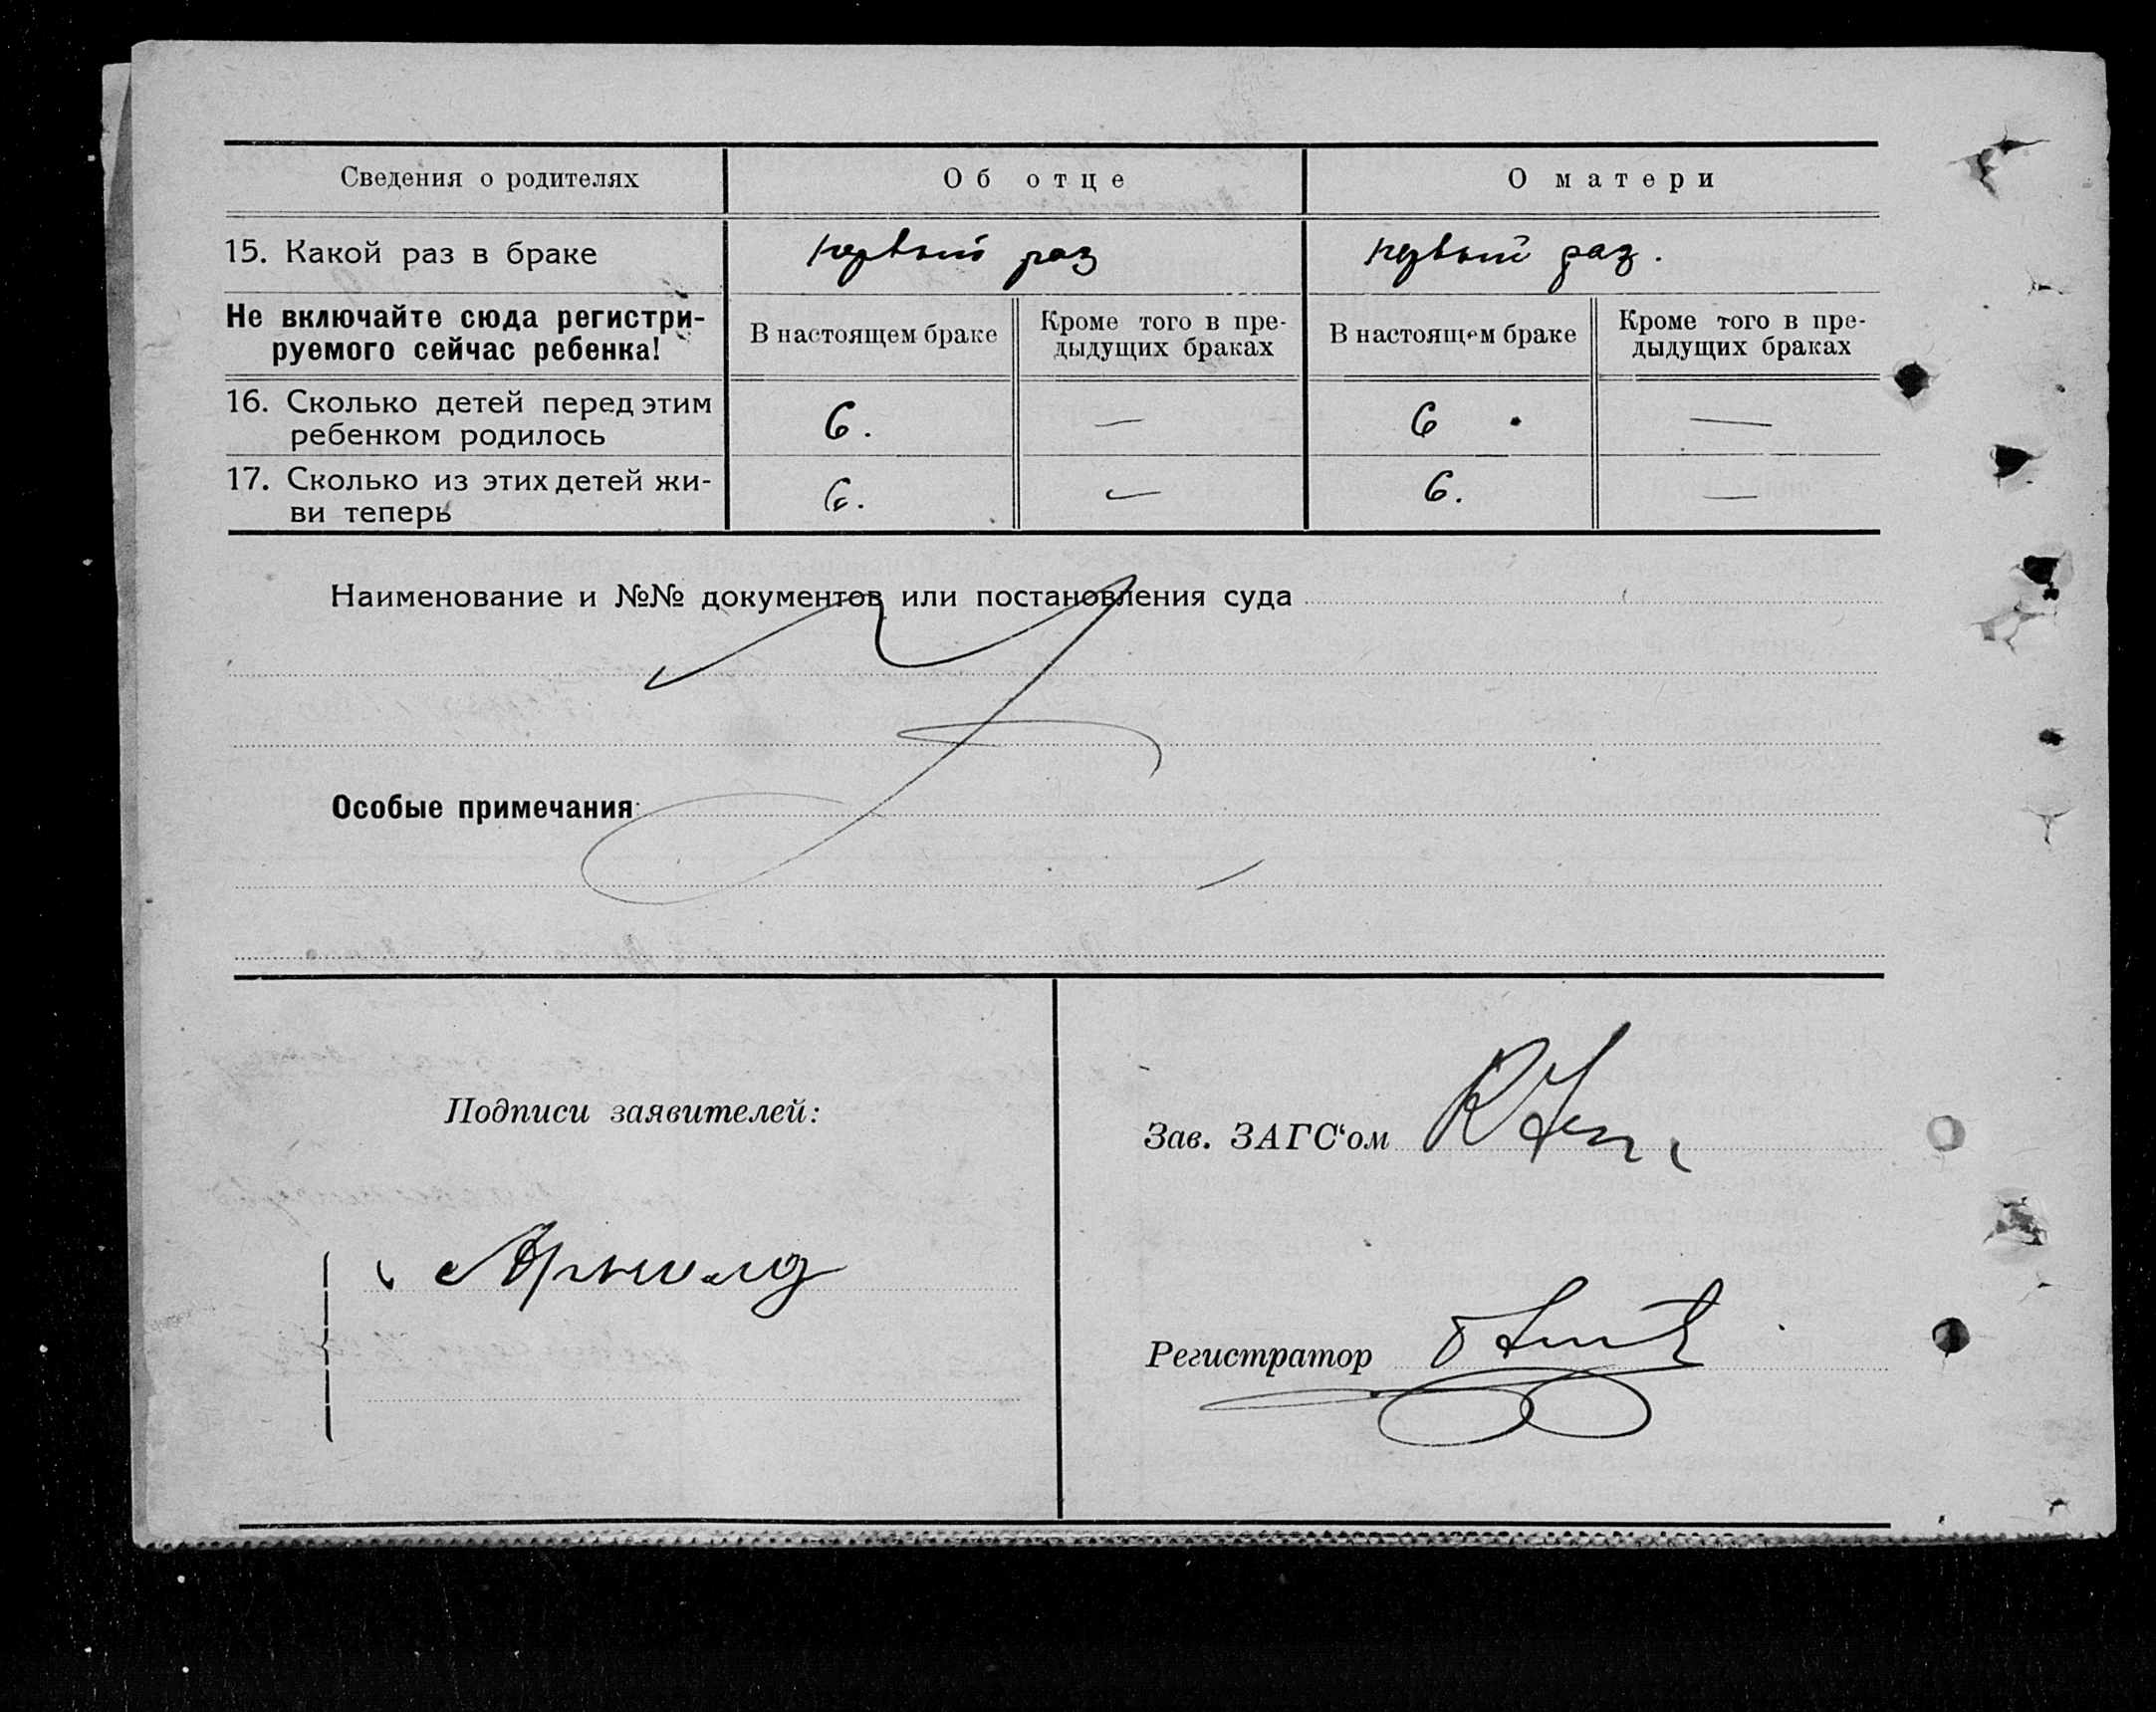 Сведения о родителях Об отце О матери
15. Какой раз в браке первый раз первый раз.
Не включайте сюда регистри-
руемого сейчас ребенка!
В настоящем браке
Кроме того в пре-
дыдущих браках
В настоящем браке
Кроме того в пре-
дыдущих браках
16. Сколько детей перед этим
ребенком родилось
6. — 6 —
17. Сколько из этих детей жи-
ви теперь
6. — 6. —
Наименование и №№ документов или постановления суда
Особые примечания
Подписи заявителей:
Зав. ЗАГС‘ом
Регистратор